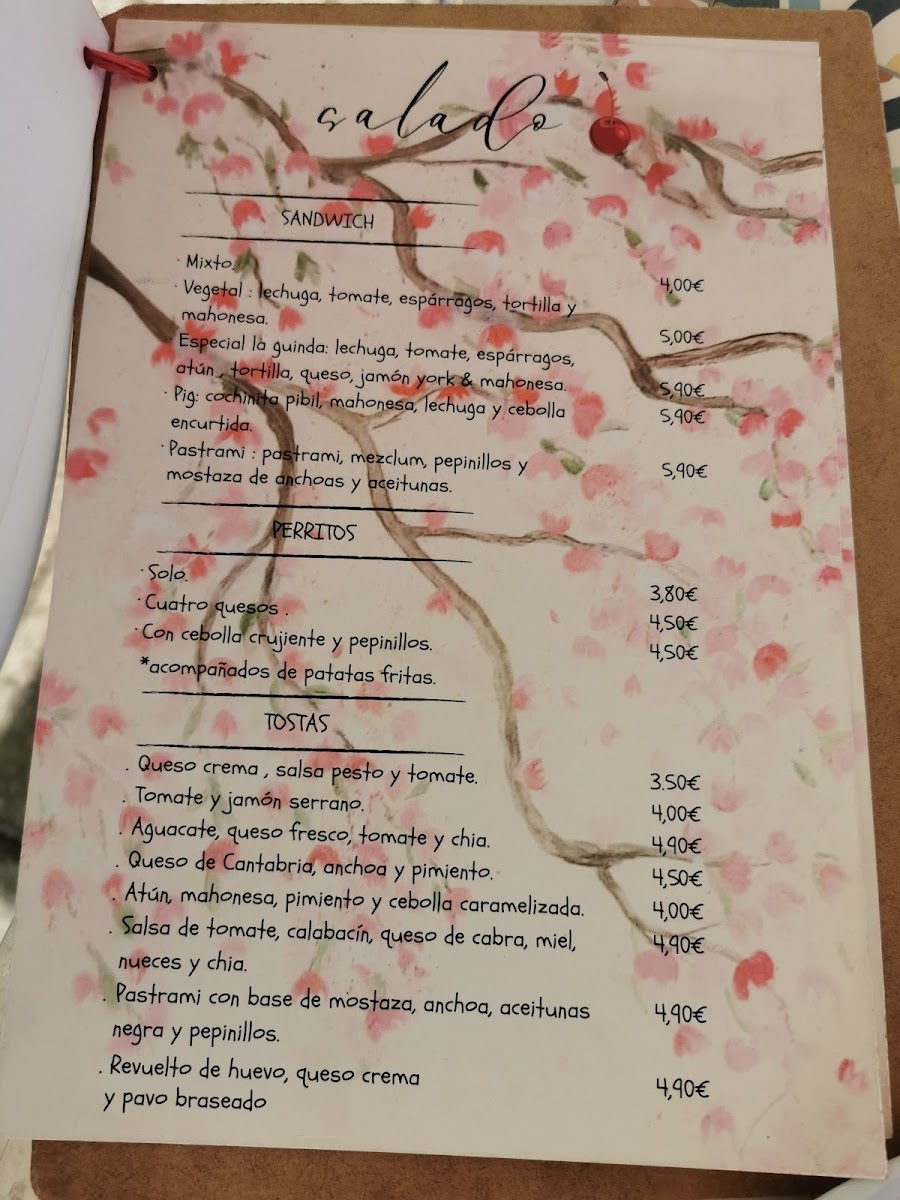 salado
SANDWICH
· Mixto. 4,00€
· Vegetal : lechuga, tomate, espárragos, tortilla y
mahonesa. 5,00€
· Especial la guinda: lechuga, tomate, espárragos,
atún , tortilla, queso, jamón york & mahonesa. 5,90€
· Pig: cochinita pibil, mahonesa, lechuga y cebolla 5,90€
encurtida.
· Pastrami : pastrami, mezclum, pepinillos y 5,90€
mostaza de anchoas y aceitunas.
PERRITOS
· Solo. 3,80€
· Cuatro quesos . 4,50€
· Con cebolla crujiente y pepinillos. 4,50€
*acompañados de patatas fritas.
TOSTAS
. Queso crema , salsa pesto y tomate. 3.50€
. Tomate y jamón serrano. 4,00€
. Aguacate, queso fresco, tomate y chia. 4,90€
. Queso de Cantabria, anchoa y pimiento. 4,50€
. Atún, mahonesa, pimiento y cebolla caramelizada. 4,00€
. Salsa de tomate, calabacín, queso de cabra, miel, 4,90€
nueces y chia.
. Pastrami con base de mostaza, anchoa, aceitunas 4,90€
negra y pepinillos.
. Revuelto de huevo, queso crema 4,90€
y pavo braseado